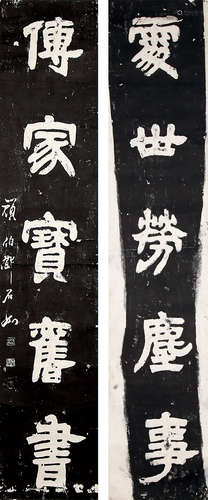 處世勞塵事
傳家寶舊書
頑伯鄧石如